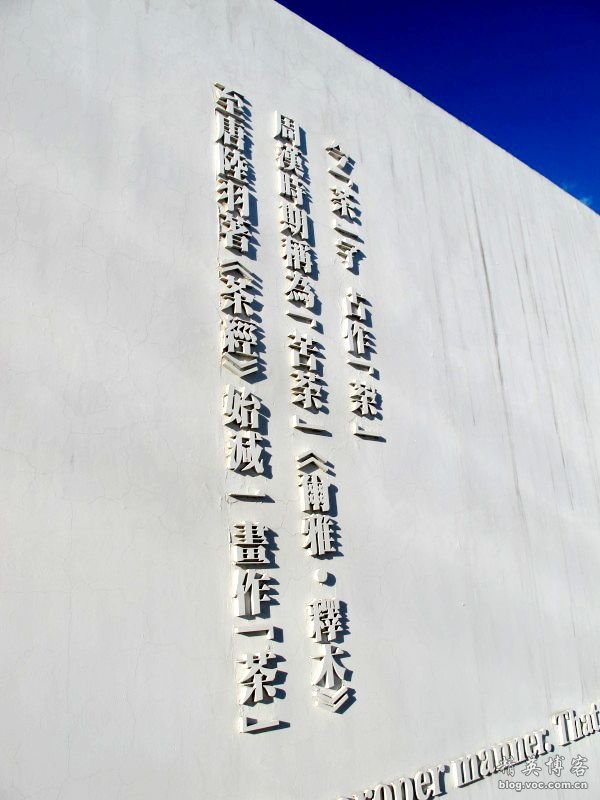 今「茶」字 古作「荼」
周漢時期稱為「苦荼」《爾雅·釋木》
至唐陸羽著《茶經》始減一畫作「茶」
proper manner. That
精英博客
blog.voc.com.cn